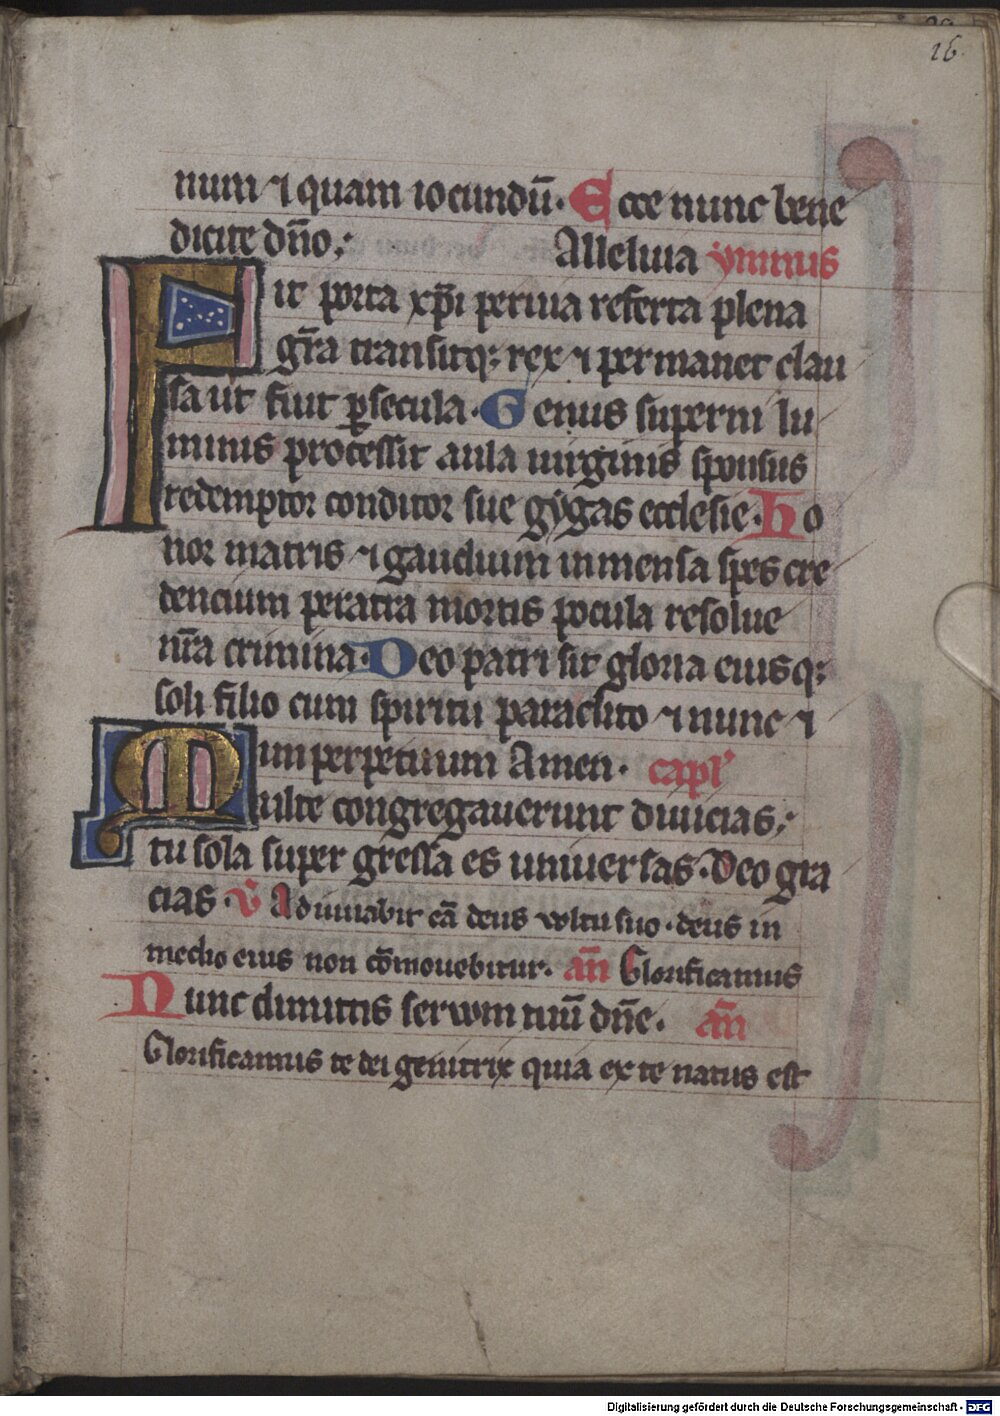 16.
num ⁊ quam iocundū. Ecce nunc bene
dicite dn̄o;
Alleluia ymnus
Fit porta xp̄i peruia referta plena
gr̄a transitq; rex ⁊ permanet clau
sa ut fuit ꝑ secula. Genus superni lu
minis processit aula uirginis sponsus
redemptor conditor sue gygas ecclesie. Ho
nor matris ⁊ gaudium inmensa spes cre
dencium per atra mortis pocula resolue
nr̄a crimina. Deo patri sit gloria eiusq;
soli filio cum spiritu paraclito ⁊ nunc ⁊
imperpetuum Amen. capl'
Multe congregauerunt diuicias;
tu sola supergressa es uniuersas. Deo gra
cias. v̄ Adiuuabit eā deus voltu suo. deus in
medio eius non cōmouebitur. an̄ Glorificamus
Nunc dimittis servvm tuū dn̄e. an̄
Glorificamus te dei genitrix quia ex te natus est
Digitalisierung gefördert durch die Deutsche Forschungsgemeinschaft - DFG